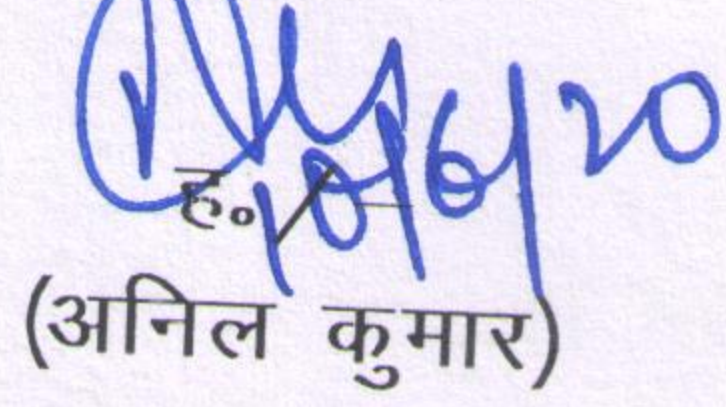 10/6/20
ह०/–
(अनिल कुमार)